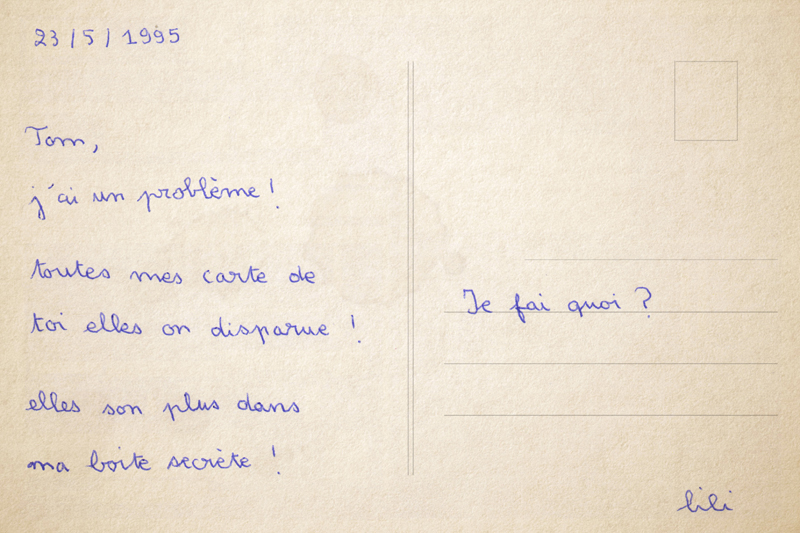 23/5/1995
Tom,
j'ai un problème !
toutes mes carte de
toi elles on disparue !
elles son plus dans
ma boite secrète !
Je fai quoi ?
lili